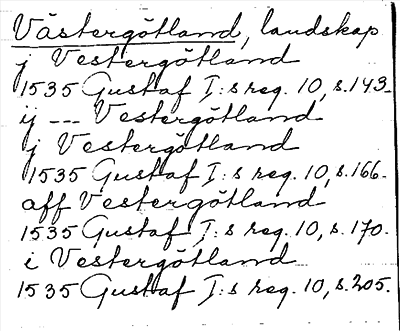 Västergötland, landskap
j Vestergötland
1535 Gustaf I:s reg. 10, s. 143.
ij --- Vestergötland
j Vestergötland
1535 Gustaf I:s reg. 10, s. 166.
aff Vestergötland
1535 Gustaf I:s reg. 10, s. 170.
i Vestergötland
1535 Gustaf I:s reg. 10, s. 205.